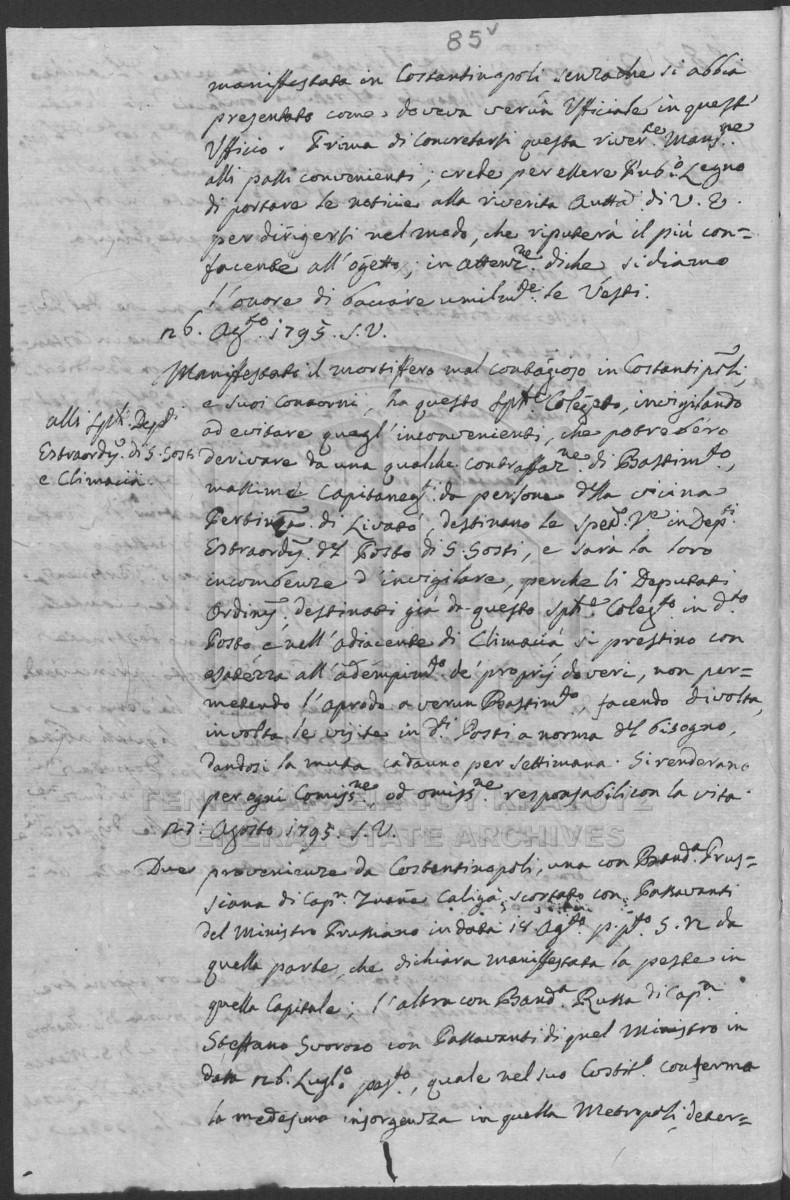 85v
manifestata in Costantinopoli senza che si abbia
presentato come doveva verun Ufficiale in quest'
Ufficio. Prima di concretarsi questa river.te Mans.ne
alli passi convenienti; crede per essere Pub.o Legno
di portare le notizie alla riverita Autta di V. E.
per dirigersi nel modo, che riputerà il più con=
facente all'ogetto; in attenz.ne di che si diamo
l'onore di bacciare umilm.de le Vesti.
n 6. Ag.to 1795. S.V.
Manifestato il mortiffero mal contagioso in Costantipoli,
e suoi contorni, ha questo Spt.e Coleg.to, invigilando
alli Spti Depti
ad evitare quegl'inconvenienti, che potrebbero
Estraordj. di S. Sosti
derivare da una qualche contraffaz.ne di Bastim.to,
e Climacia.
massime Capitaneg.ti da persone della vicina
Pertin.za di Livatò, destinano le Sped. Ve in Dep.ti
Estraordj. del Posto di S. Sosti, e sarà la loro
incombenze d'invigilare, perche li Deputati
Ordinj, destinati già da questo Spt.e Coleg.to in d.to
Posto e nell'adiacente di Climacià si prestino con
esatezza all'adempim.to de' proprij doveri, non per=
metendo l'aprodo a verun Bastim.to, facendo di volta,
in volta le visite in d.ti Posti a norma del bisogno,
dandosi la muta cadauno per settimana. Si renderano
per ogni Comiss.ne, od omiss.ne responsabili con la vita.
ΓΕΝΙΚΑ ΑΡΧΕΙΑ ΤΟΥ ΚΡΑΤΟΥΣ
GENERAL STATE ARCHIVES
n 7. Agosto 1795. S.V.
Due provenienze da Costantinopoli, una con Band.a Prus=
siana di Cap.n Zuane Caligà, scortato con Passavanti
del Ministro Prussiano in data 14 Ag.to p.pto S. N. da
quella parte, che dichiara manifestata la peste in
quella Capitale; l'altra con Band.a Russa di Cap.n
Steffano Svorono con Passavanti di quel Ministro in
data n 6. Lugl.o pas.to, quale nel suo Costit.o conferma
la medesima insorgenza in quella Metropoli, deter=